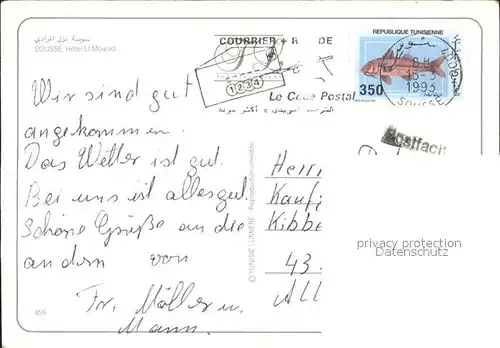 سوسة نزل المرادي
SOUSSE. Hôtel El Mourad
COURRIER + R DE
1 2 3 4
Le Code Postal
REPUBLIQUE TUNISIENNE
350
8H
15-3
1993
SOUSSE
Postfach
Wir sind gut
angekommen.
Das Wetter ist gut.
Bei uns ist alles gut.
Schöne Grüße an die
andern von
Fr. Möller u.
Mann.
© TUNISIE LUMIÈRE Reproduction interdite
Herr
Kauf
Kibbe
43
All
privacy protection
Datenschutz
456